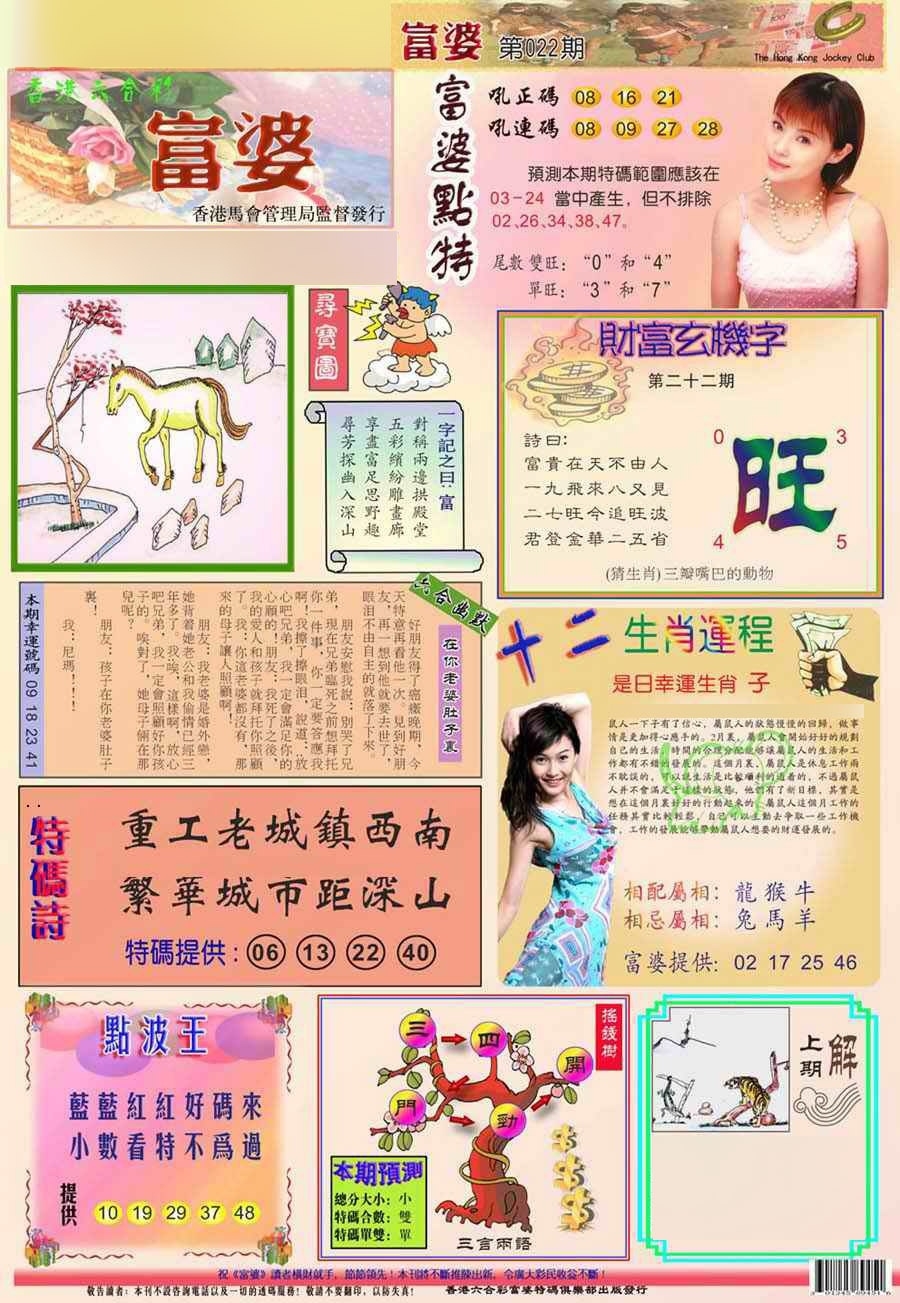 富婆 第022期
The Hong Kong Jockey Club
香港六合彩
富婆
香港馬會管理局監督發行
富婆點特
吼正碼 08 16 21
吼連碼 08 09 27 28
預測本期特碼範圍應該在
03-24 當中產生，但不排除
02、26、34、38、47。
尾數雙旺：“0”和“4”
單旺：“3”和“7”
尋寶圖
一字記之曰：富
對稱兩邊拱殿堂
五彩繽紛雕畫廊
享盡富足思野趣
尋芳探幽入深山
財富玄機字
第二十二期
詩曰：
富貴在天不由人
一九飛來八又見
二七旺今追旺波
君登金華二五省
0 3
旺
4 5
(猜生肖)三瓣嘴巴的動物
六合幽默
在你老婆肚子裏
好朋友得了癌癥晚期，今
天特意再看他一次。見到好朋
友，再一想到他就要去世了，
眼泪不由自主的就落了下來。
朋友安慰我説：別哭了兄
弟，現在兄弟臨死之前想拜托
你一件事，你一定要答應我
啊！我擦了擦眼泪，説道：放
心吧兄弟，我一定會滿足你的
心願的！朋友：我死了之後，
我的愛人和孩子就拜托你照顧
了。我：你這老婆都没有，那
來的母子讓人照顧啊！
朋友：我老婆是婚外戀，
她背着她老公和我偷情已經三
年多了。我：唉，這樣啊，放心
吧兄弟，我一定會照顧好你孩
子的。唉對了，她母子倆在那
兒呢？
朋友：孩子在你老婆肚子
裏！
我：尼瑪！！！
本期幸運號碼 09 18 23 41
十二生肖運程
是日幸運生肖 子
鼠人一下子有了信心，屬鼠人的狀態慢慢的回歸，做事
情是更加得心應手的。2月裏，屬鼠人會開始好好的規劃
自己的生活，時間的合理分配能够讓屬鼠人的生活和工
作都有不錯的發展的。這個月裏，屬鼠人是休息工作兩
不耽誤的，可以説生活是比較順利的過着的，不過屬鼠
人并不會滿足于這樣的狀態，他們有了新目標，其實是
想在這個月裏好好的行動起來的。屬鼠人這個月工作的
任務其實比較輕鬆，自己可以主動去争取一些工作機
會，工作的發展能够帶動屬鼠人想要的財運發展的。
相配屬相：龍猴牛
相忌屬相：兔馬羊
富婆提供：02 17 25 46
特碼詩
重工老城鎮西南
繁華城市距深山
特碼提供：06 13 22 40
點波王
藍藍紅紅好碼來
小數看特不爲過
提供 10 19 29 37 48
搖錢樹
三 四 開
門 勁
本期預測
總分大小：小
特碼合數：雙
特碼單雙：單
三言兩語
上期解
祝《富婆》讀者橫財就手，節節領先！本刊將不斷推陳出新，令廣大彩民收益不斷！
敬告讀者：本刊不設咨詢電話以及一切的透碼服務！敬請不要翻印，以防失真！
香港六合彩富婆特碼俱樂部出版發行